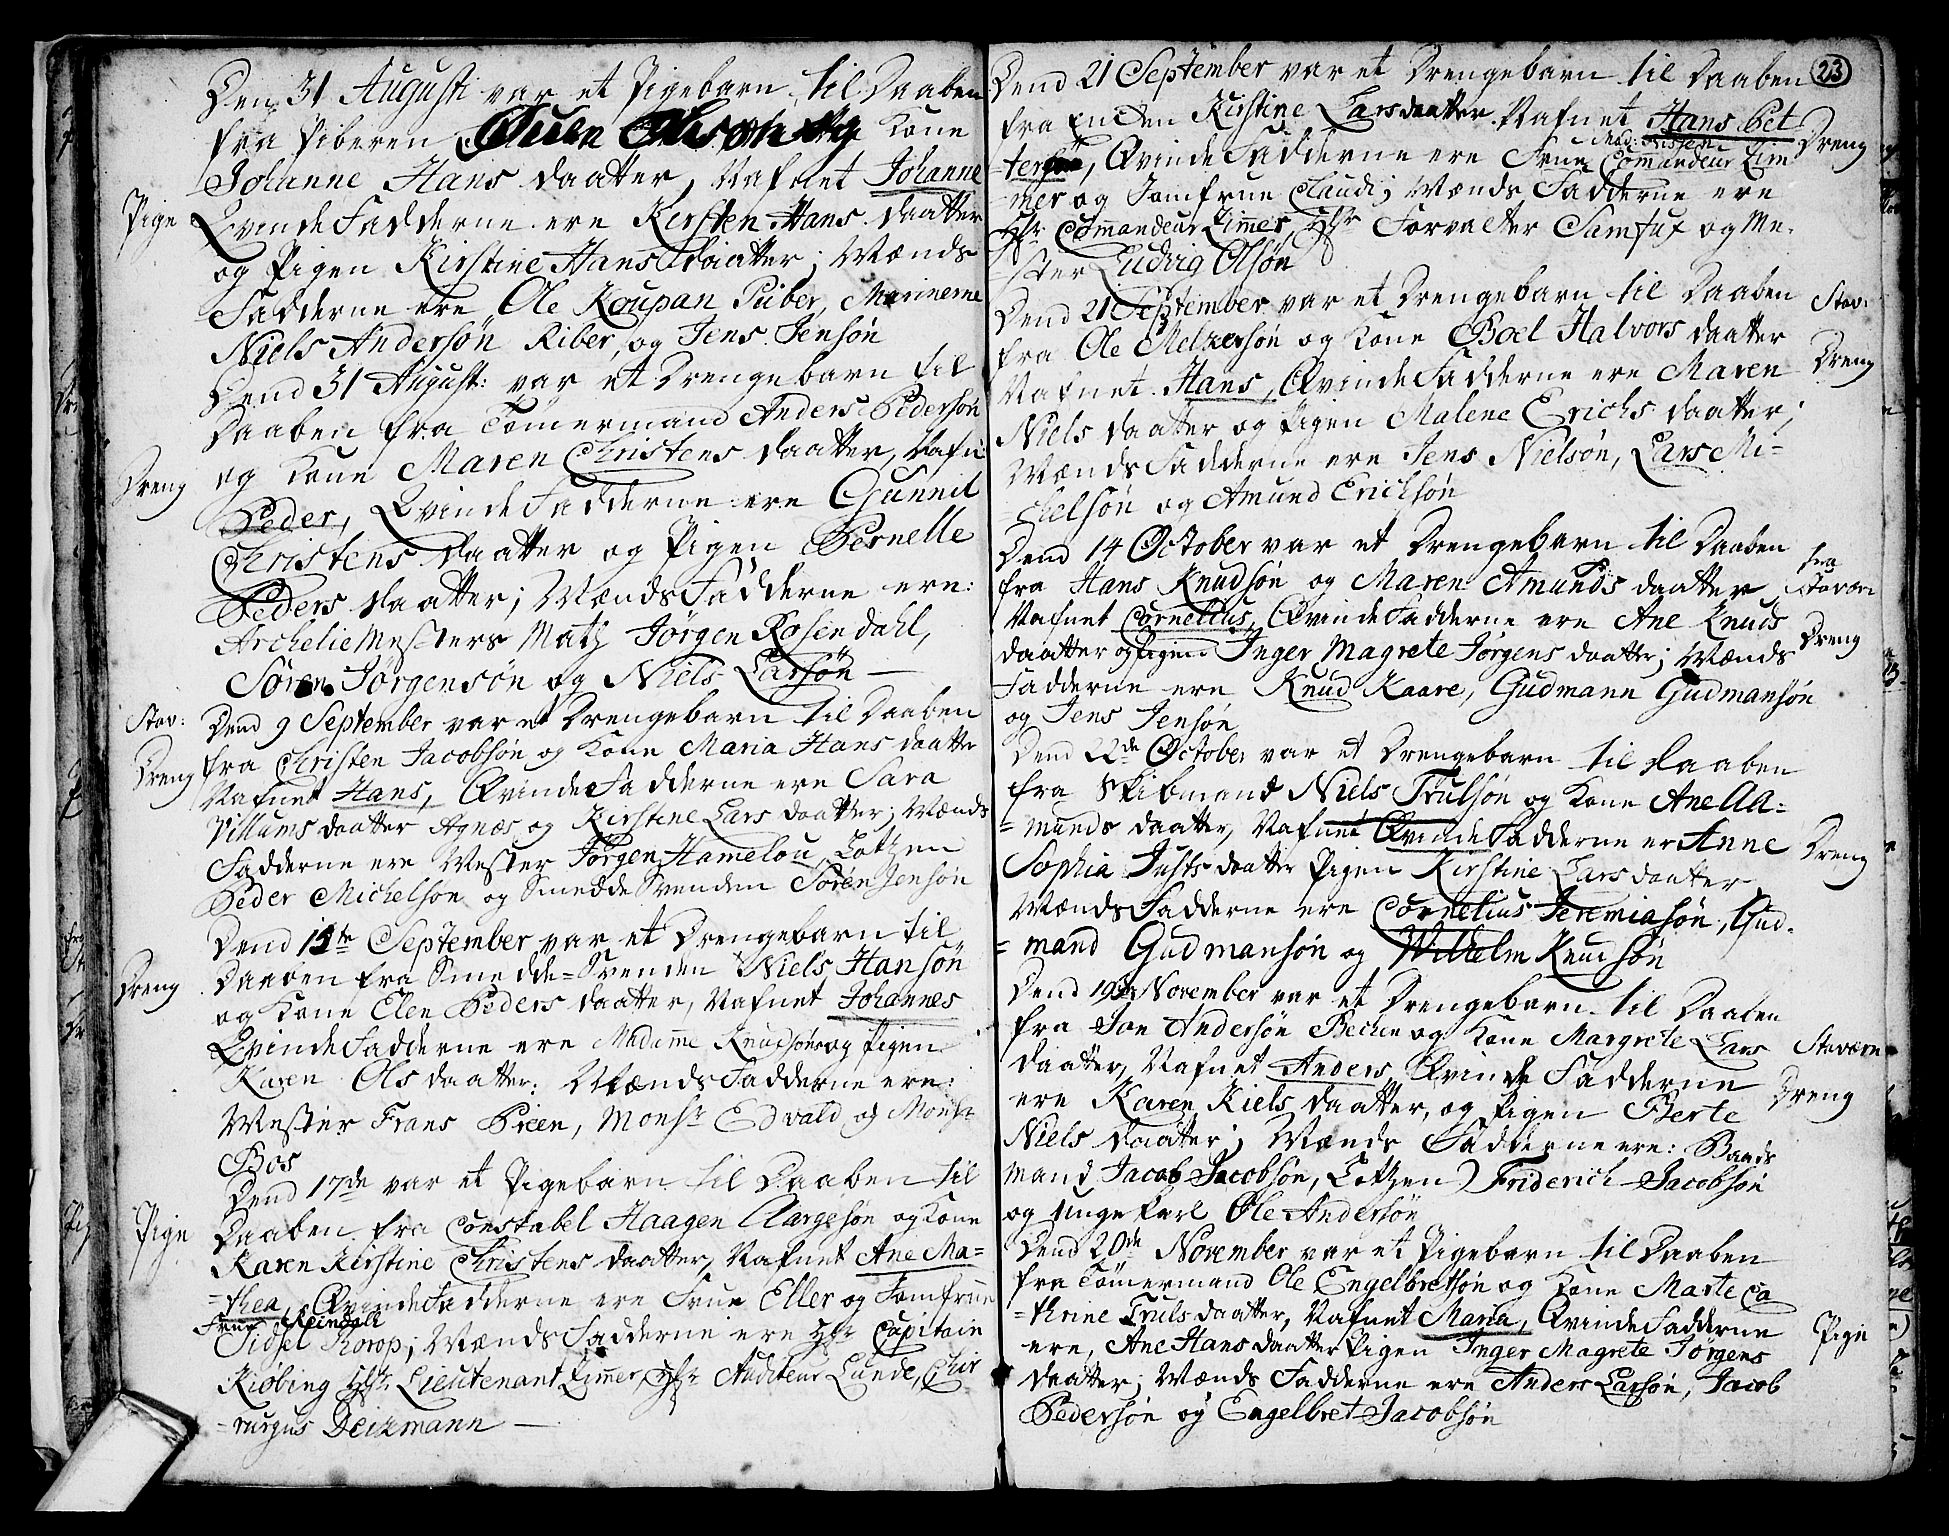 Den 31 August: var et Pigebarn til Daaben
fra Piberen Suen Olesøn og Kone
Johanne Hans daatter, Nafnet Johanne
Pige
Qvinde Fadderne ere Kirsten Hans daatter
og Pigen Kirstine Hans daatter; Mænds
Fadderne ere Ole Koupan Piber, Marinerne
Niels Andersøn Riber, og Jens Jensøn
Dend 31 August: var et Drengebarn til
Daaben fra Tømermand Anders Pedersøn
og Kone Maren Christens daatter, Nafn:
Dreng
Peder, Qvinde Fadderne ere Gunnil
Christens daatter og Pigen Pernelle
Peders daatter; Mænds Fadderne ere:
Archeliemesters Math Jørgen Rosendahl,
Søren Jørgensøn og Niels Larsøn —
Stav:
Dend 9 September var et Drengebarn til Daaben
Dreng
fra Christen Jacobsøn og Kone Maria Hans daatter
Nafnet Hans, Qvinde Fadderne ere Sara
Villums daatter Agnæs og Kirstine Lars daatter; Mænds
Fadderne ere Mester Jørgen Hamelou, Lotzen
Peder Michelsøn og Smedde Svenden Sørén Jensøn
Dend 15te September var et Drengebarn til
Dreng
Daaben fra Smedde=Svenden Niels Hansøn
og Kone Elen Peders daatter, Nafnet Johannes
Qvinde Fadderne ere Madame Knudsøns og Pigen
Karen Ols daatter: Mænds Fadderne ere:
Mester Frans Preen, Monsr Edvald og Monsr
Bos
Dend 17de var et Pigebarn til Daaben til
Pige
Daaben fra Constabel Haagen Aargesøn og Kone
Karen Kirstine Christens daatter, Nafnet Ane Ma=
=thea, Qvinde Fadderne ere Frue Eller og Jomfrue
Frue Reindall
Sidsel Korop; Mænds Fadderne ere Hr Capitain
Kiøbing Hr Lieutenant Zimmer, Hr Auditeur Lunde, Chir
=rurgus Deizmann —
23
Dend 21 September var et Drengebarn til Daaben
fra Enken Kirstine Lars daatter Nafnet Hans Pet
Mad: Nissen
Dreng
=tersøn, Qvinde Fadderne ere Frue Comandeur Zim
=mer og Jomfrue Claudi; Mænds Fadderne ere
Hr Comandeur Zimer, Hr Forvalter Samfux og Me.
=ster Ludvig Olsøn
Dend 21 September var et Drengebarn til Daaben
Stav:
fra Ole Melkersøn og Kone Boel Halvors daatter
Dreng
Nafnet Hans, Qvinde Fadderne ere Maren
Niels daatter og Pigen Malene Erichs daatter;
Mænds Fadderne ere Jens Nielsøn, Lars Mi=
=chelsøn og Amund Erichsøn
Dend 14 October var et Drengebarn til Daaben
fra
fra Hans Knudsøn og Maren Amunds daatter
Stavern
Nafnet Cornelius, Qvinde Fadderne ere Ane Knuds
Dreng
daatter og Pigen Inger Magrete Jørgens daatter; Mænds
Fadderne ere Knud Kaare, Gudmann Gudmansøn
og Jens Jensøn
Dend 22de October var et Drengebarn til Daaben
fra Skibmand Niels Trulsøn og Kone Ane Aa=
=munds daatter, Nafnet Qvinde Fadderne er Anne
Dreng
Sophia Justs daatter Pigen Kirstine Lars daatter
Mænds Fadderne ere Cornelius Jeremiasøn, Gud.
=mand Gudmansøn og Wilhelm Knudsøn
Dend 19de November var et Drengebarn til Daaben
fra Jon Andersøn Becken og Kone Margrete Lars
Stavern
daatter, Nafnet Anders Qvinde Fadderne
Dreng
ere Karen Kiels daatter, og Pigen Berte
Niels daatter; Mænds Fadderne ere: Baads
mand Jacob Jacobsøn, Lotzen Friderich Jacobsøn
og unge karl Ole Andersøn
Dend 20de November var et Pigebarn til Daaben
fra Tømermand Ole Engelbretsøn og Kone Marte Ca
=thrine Truls daatter, Nafnet Maria, Qvinde Fadderne
Pige
ere, Ane Hans daatter Pigen Inger Magrete Jørgens
daatter; Mænds Fadderne ere Anders Larsøn, Jacob
Pedersøn og Engelbret Jacobsøn